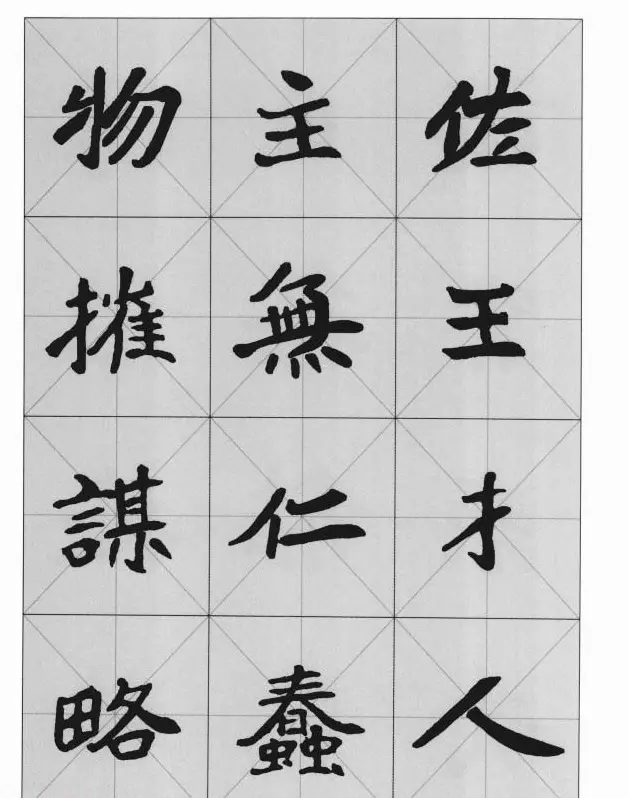 佐王才人
主無仁蠢
物搉謀略